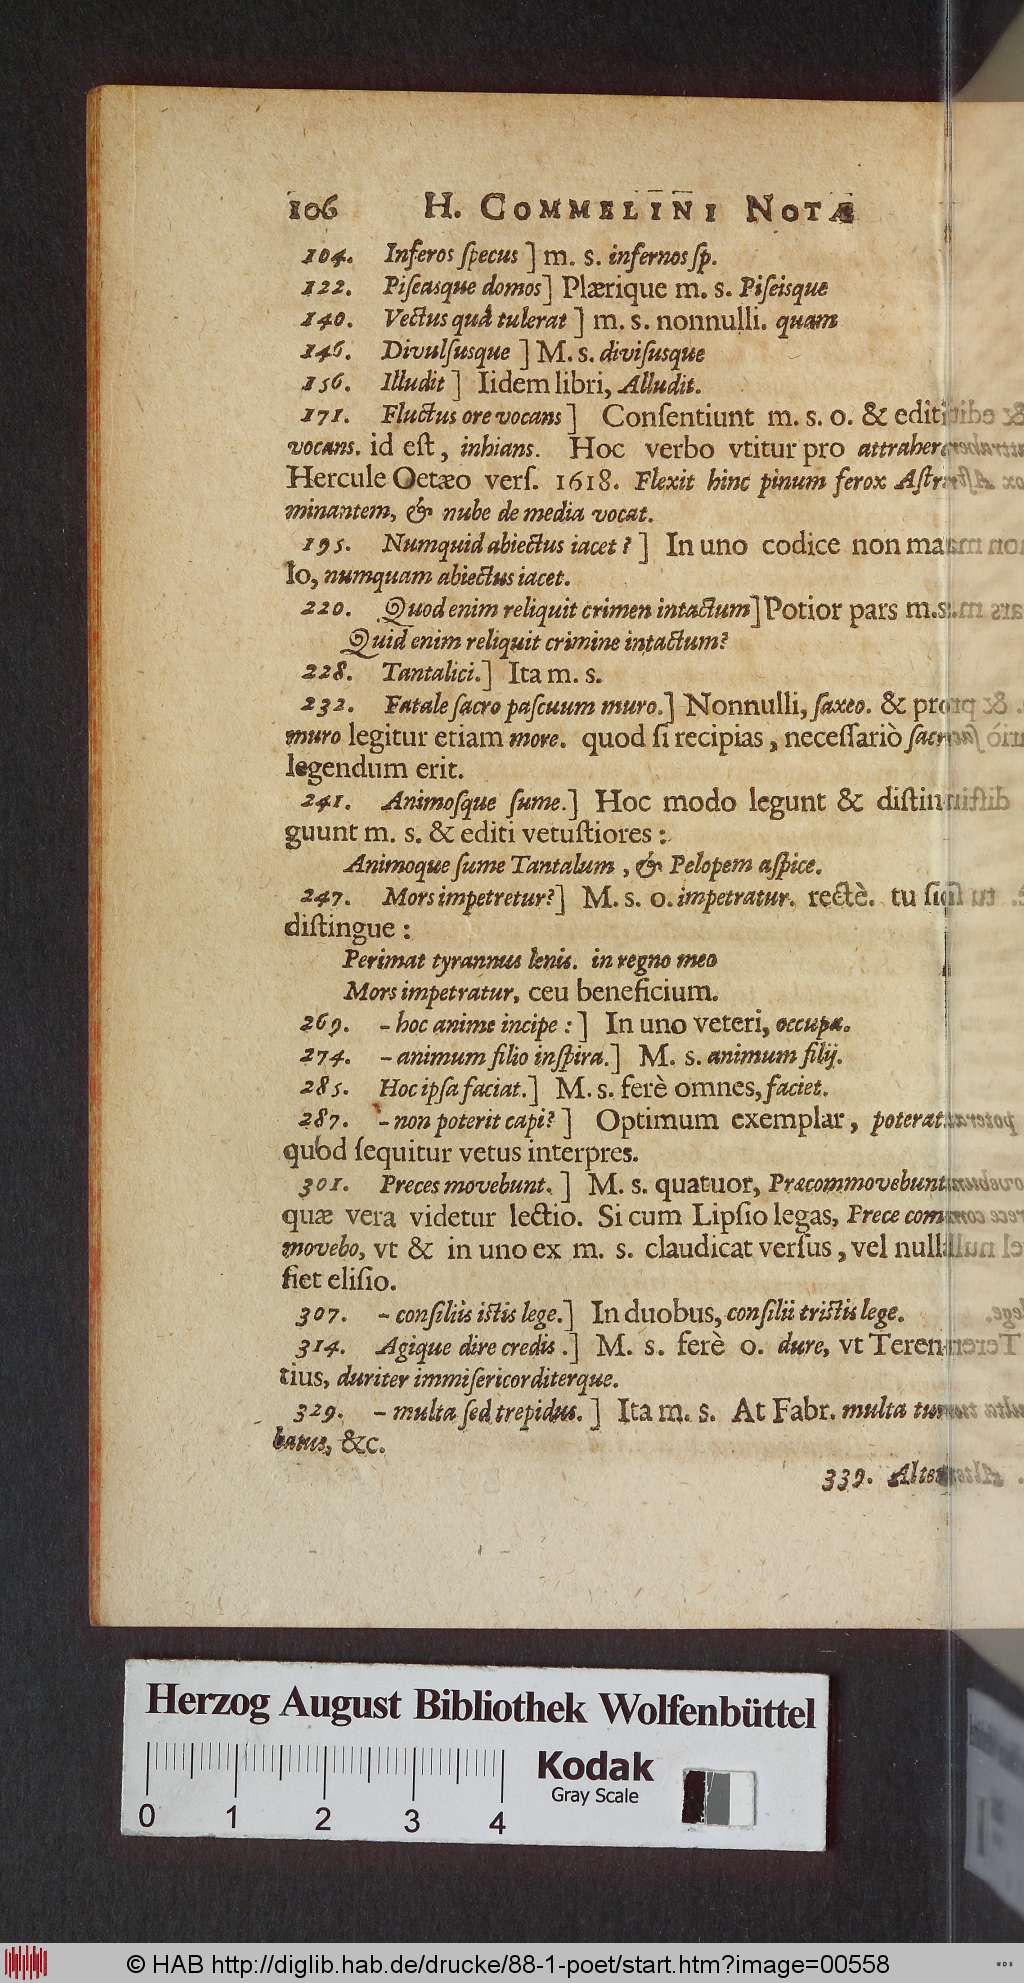 106 H. COMMELINI NOTÆ
104. Inferos ſpecus ] m. s. infernos ſp.
122. Piſeasque domos ] Plærique m. s. Piſeisque
140. Vectus quâ tulerat ] m. s. nonnulli. quam
146. Divulſusque ] M. s. diviſusque
156. Illudit ] Iidem libri, Alludit.
171. Fluctus ore vocans ] Conſentiunt m. s. o. & editi
vocans. id eſt, inhians. Hoc verbo vtitur pro attrahere
Hercule Oetæo verſ. 1618. Flexit hinc pinum ferox
minantem, & nube de media vocat.
195. Numquid abiectus iacet? ] In uno codice non ma
lo, numquam abiectus iacet.
220. Quod enim reliquit crimen intactum] Potior pars m.s.
Quid enim reliquit crimine intactum?
228. Tantalici.] Ita m. s.
232. Fatale ſacro paſcuum muro.] Nonnulli, ſaxeo. & pro
muro legitur etiam more. quod ſi recipias, neceſſariò
legendum erit.
241. Animoſque ſume.] Hoc modo legunt & diſtin
guunt m. s. & editi vetuſtiores:
Animoque ſume Tantalum, & Pelopem aſpice.
247. Mors impetretur?] M. s. o. impetratur. rectè. tu ſic
diſtingue:
Perimat tyrannus lenis. in regno meo
Mors impetratur, ceu beneficium.
269. – hoc anime incipe: ] In uno veteri, occupa.
274. – animum filio inſpira.] M. s. animum filij.
285. Hoc ipſa faciat.] M. s. ferè omnes, faciet.
287. – non poterit capi? ] Optimum exemplar, poterat.
quod ſequitur vetus interpres.
301. Preces movebunt. ] M. s. quatuor, Præcommovebunt
quæ vera videtur lectio. Si cum Lipſio legas, Prece com
movebo, vt & in uno ex m. s. claudicat verſus, vel nulla
fiet eliſio.
307. – conſiliis istis lege.] In duobus, conſilii tristis lege.
314. Agique dire credis.] M. s. ferè o. dure, vt Teren-
tius, duriter immiſericorditerque.
329. – multa ſed trepidus. ] Ita m. s. At Fabr. multa tur
batus, &c.
339. Alter
Herzog August Bibliothek Wolfenbüttel
Kodak
Gray Scale
0 1 2 3 4
© HAB http://diglib.hab.de/drucke/88-1-poet/start.htm?image=00558